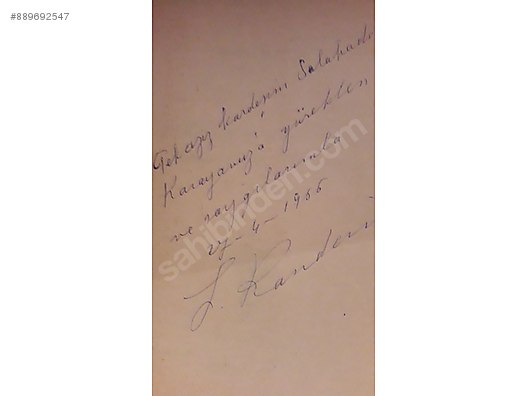 #889692547
Pek aziz kardeşim Salahadd
Karayavuz'a yürekten
ve saygılarımla
27-4-1966
L. Kandemi
sahibinden.com